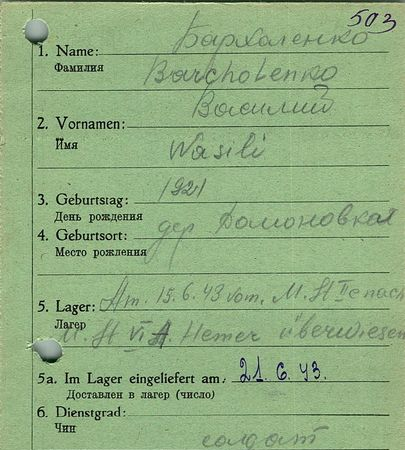 503
Бархаленко
1. Name:
Фамилия
Barcholenko
Василий
2. Vornamen:
Имя
Wasili
3. Geburtstag: 1921
День рождения
4. Geburtsort: дер Домоновка
Место рождения
5. Lager: Am. 15.6.43 vom. M. St II e nach
Лагер
M. St VI A. Hemer überwiesen
5a. Im Lager eingeliefert am: 21. 6. 43.
Доставлен в лагер (число)
6. Dienstgrad:
Чин
солдат